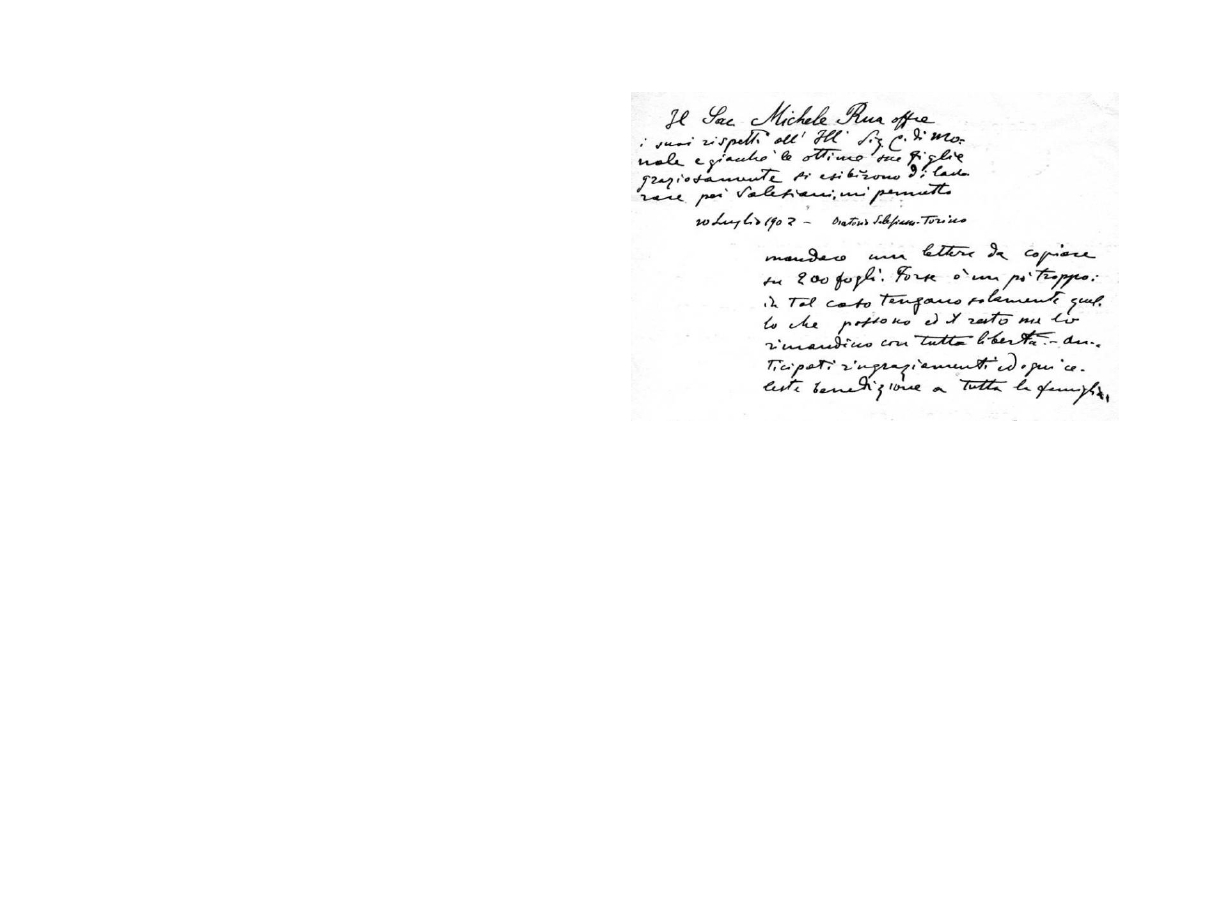 Il Sac. Michele Rua offre
i suoi rispetti all' Ill' Sig C. di Mo-
nale e giacchè le ottime sue figlie
graziosamente si esibirono di lavo-
rare pei Salesiani, mi permetto
20 Luglio 1902 – Oratorio Salesiano-Torino
mandare una lettera da copiare
su 200 fogli. Forse è un pò troppo:
in tal caso tengano solamente quel-
lo che possono ed il resto me lo
rimandino con tutta libertà. – An-
ticipati ringraziamenti ed ogni ce-
leste benedizione a tutta la famiglia.